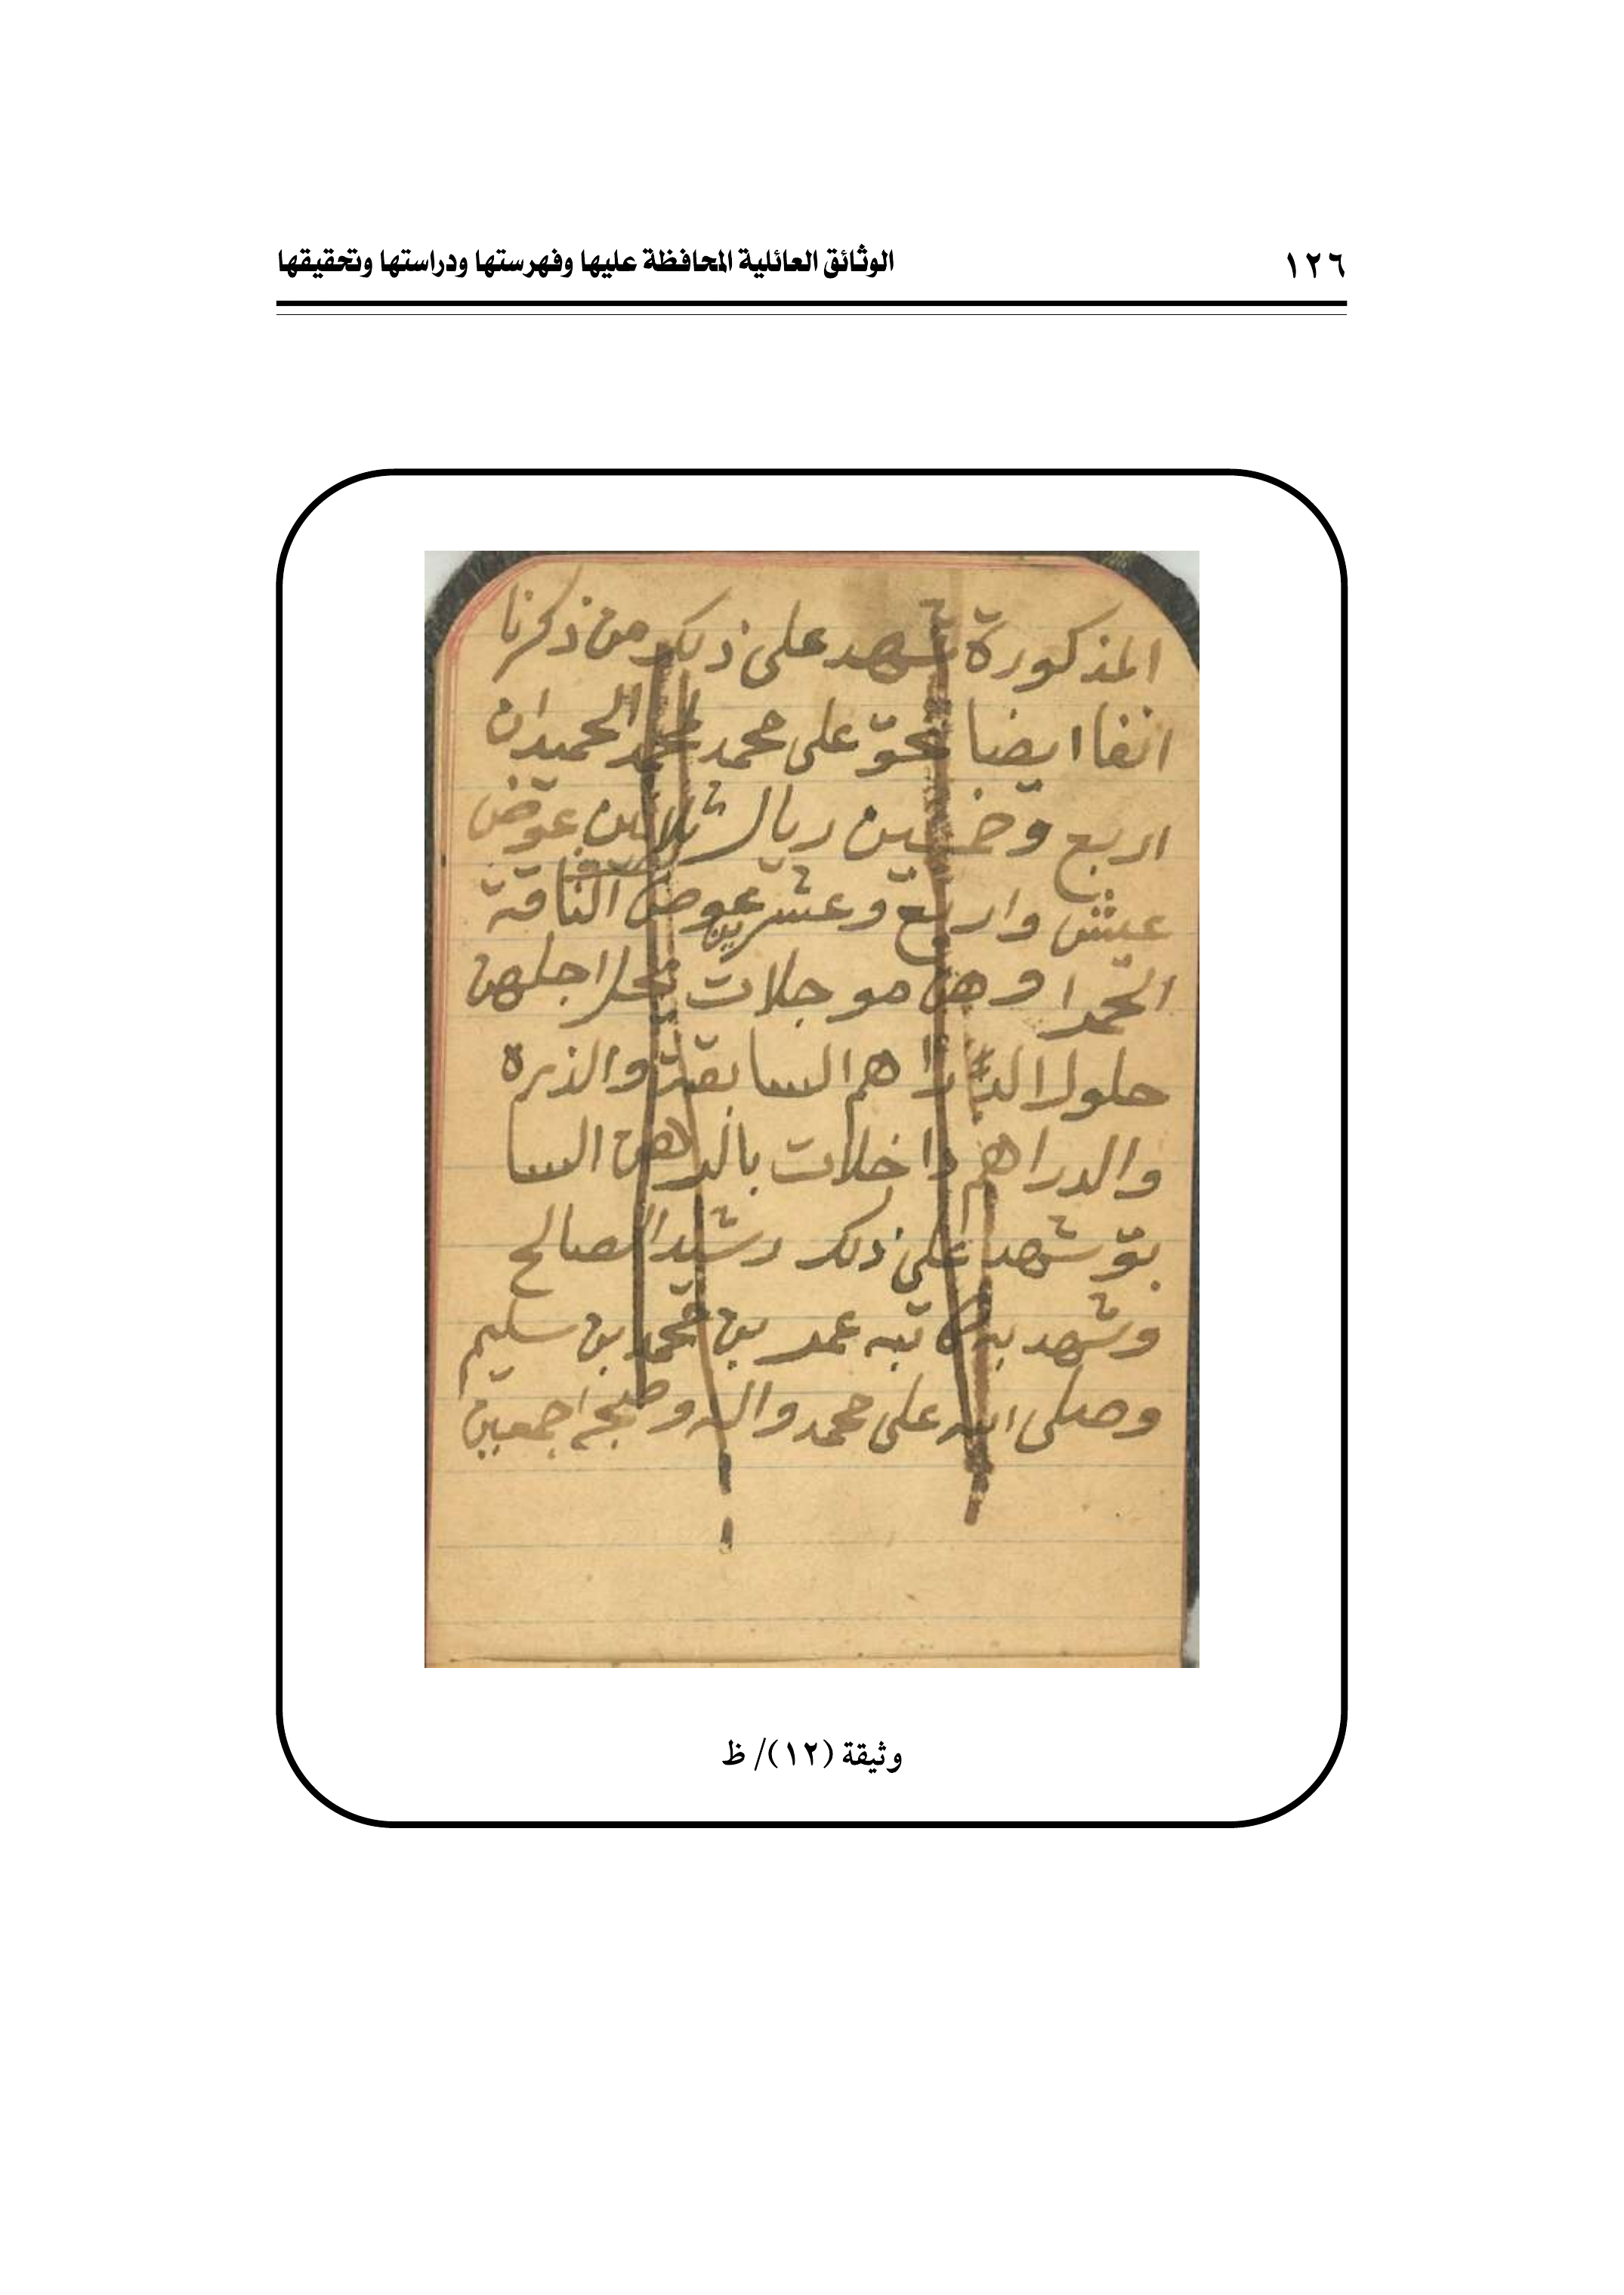 ١٢٦
الوثائق العائلية المحافظة عليها وفهرستها ودراستها وتحقيقها
المذكورة شهد على ذلك من ذكرنا
انفا ايضا على محمد الحميدان
اربع وخمسين ريال ثلاثين عوض
عيش واربع وعشرين عوض الناقة
الحمرا وهن موجلات يحل اجلهن
حلول الدراهم السابقة والذرة
والدراهم داخلات بالرهن السا
بق شهد على ذلك رشيد الصالح
وشهد به كاتبه عمر بن محمد بن سليم
وصلى الله على محمد واله وصحبه اجمعين
وثيقة (١٢)/ ظ